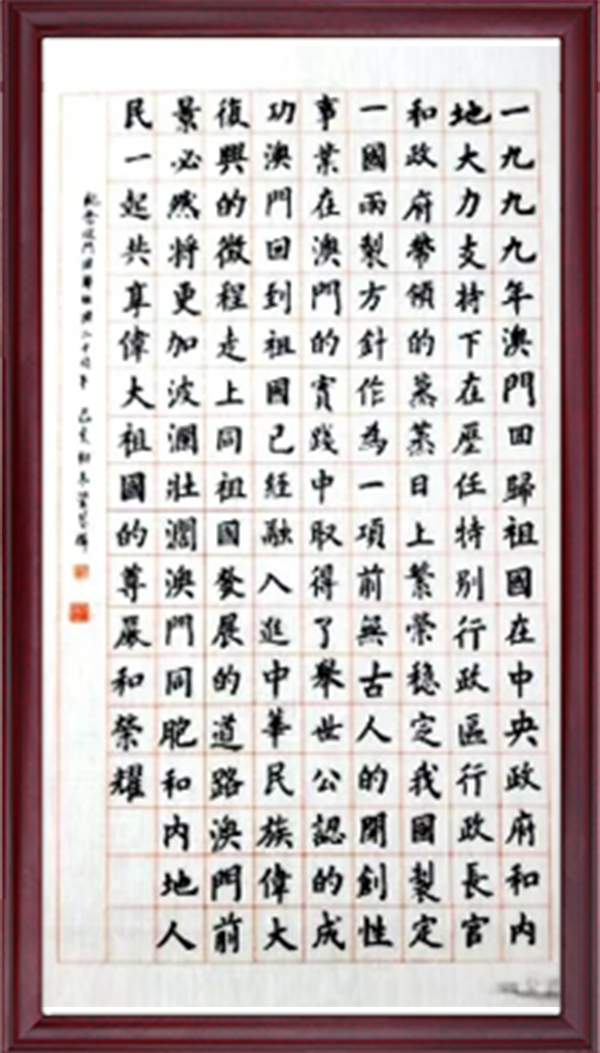 一九九九年澳門回歸祖國在中央政府和内
地大力支持下在歷任特别行政區行政長官
和政府帶領的蒸蒸日上繁榮穩定我國製定
一國兩製方針作為一項前無古人的開創性
事業在澳門的實踐中取得了舉世公認的成
功澳門回到祖國已經融入進中華民族偉大
復興的徵程走上同祖國發展的道路澳門前
景必然將更加波瀾壯濶澳門同胞和内地人
民一起共享偉大祖國的尊嚴和榮耀
紀念澳門回歸祖國二十周年 己亥初冬